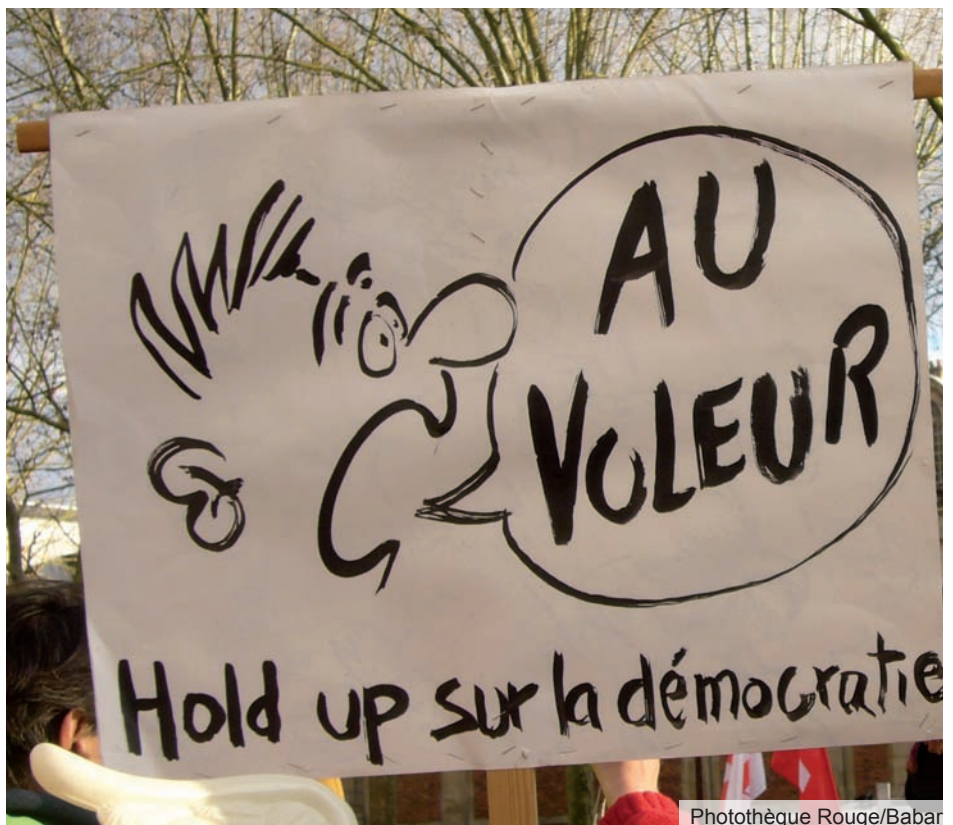 AU
VOLEUR
Hold up sur la démocratie
Photothèque Rouge/Babar